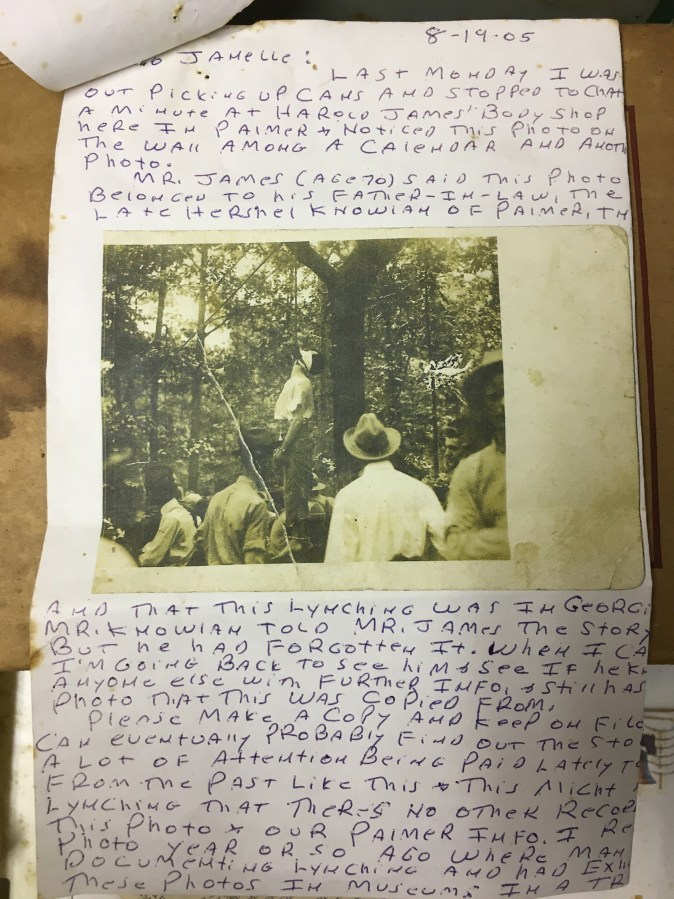 8-19-05
JANELLE:
LAST MONDAY I WAS
OUT PICKING UP CANS AND STOPPED TO CHAT
A MINUTE AT HAROLD JAMES' BODY SHOP
HERE IN PALMER & NOTICED THIS PHOTO ON
THE WALL AMONG A CALENDAR AND ANOTH
PHOTO.
MR. JAMES (AGE 70) SAID THIS PHOTO
BELONGED TO HIS FATHER-IN-LAW, THE
LATE HERSHEL KNOWLAN OF PALMER, TN
AND THAT THIS LYNCHING WAS IN GEORGI
MR. KNOWLAN TOLD MR. JAMES THE STORY
BUT HE HAD FORGOTTEN IT. WHEN I CA
I'M GOING BACK TO SEE HIM & SEE IF HE KN
ANYONE ELSE WITH FURTHER INFO, & STILL HAS
PHOTO THAT THIS WAS COPIED FROM.
PLEASE MAKE A COPY AND KEEP ON FILE
CAN EVENTUALLY PROBABLY FIND OUT THE STO
A LOT OF ATTENTION BEING PAID LATELY TO
FROM THE PAST LIKE THIS & THIS MIGHT
LYNCHING THAT THER-S NO OTHER RECOR
THIS PHOTO & OUR PALMER INFO. I RE
PHOTO YEAR OR SO AGO WHERE MAN
DOCUMENTING LYNCHING AND HAD EXHI
THESE PHOTOS IN MUSEUMS IN A TR